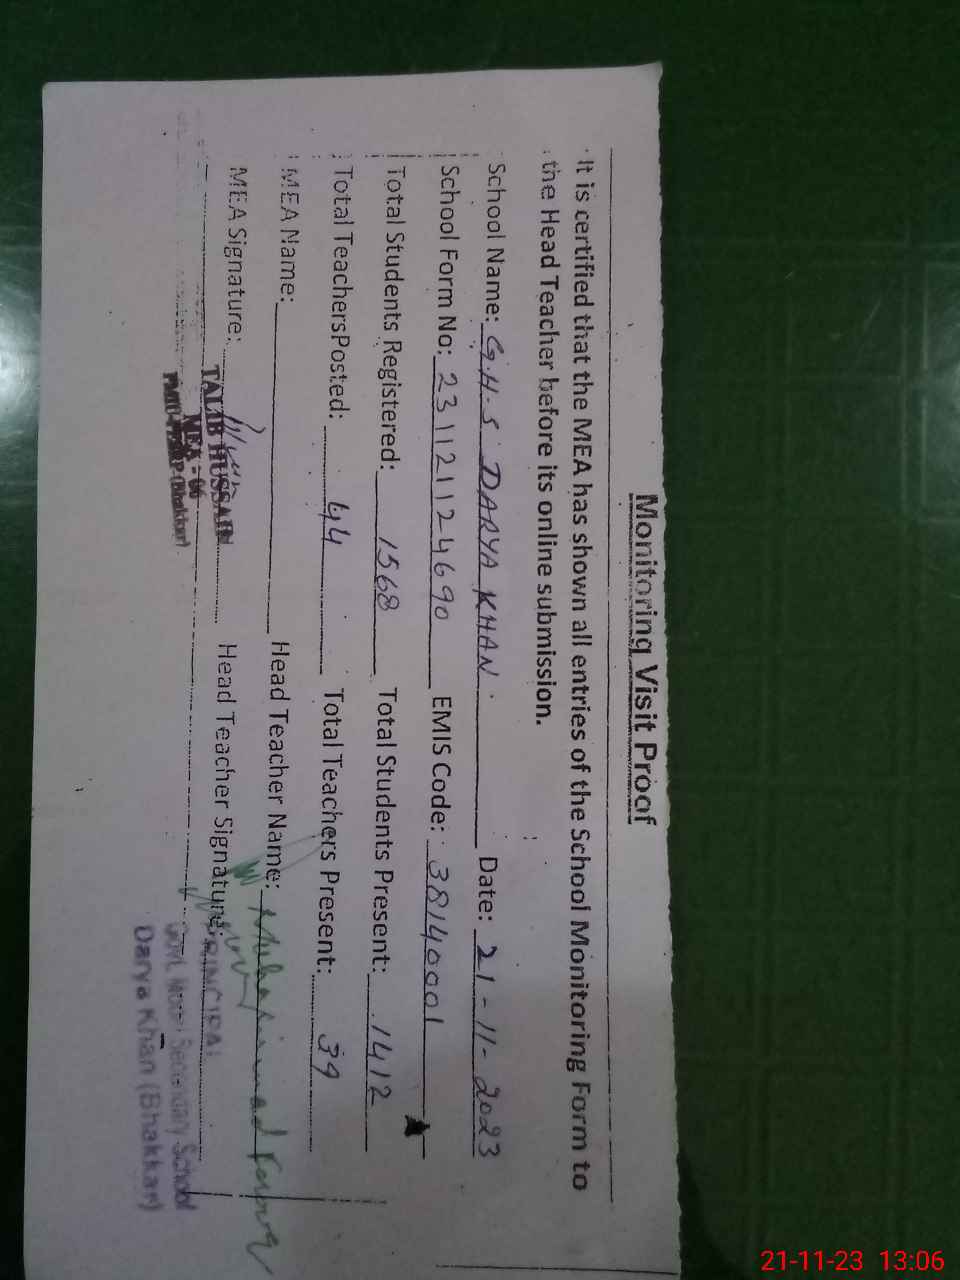 Monitoring Visit Proof
It is certified that the MEA has shown all entries of the School Monitoring Form to
the Head Teacher before its online submission.
School Name: G.H.S DARYA KHAN. Date: 21-11-2023
School Form No: 23112112 4690 EMIS Code: 38140001
Total Students Registered: 1568 Total Students Present: 1412
Total TeachersPosted: 44 Total Teachers Present: 39
MEA Name: Head Teacher Name: Muhammad
MEA Signature: Head Teacher Signature:
TALIB HUSSAIN
MEA - 06
(Bhakkar)
PRINCIPAL
Govt. Model Secondary School
Darya Khan (Bhakkar)
21-11-23 13:06